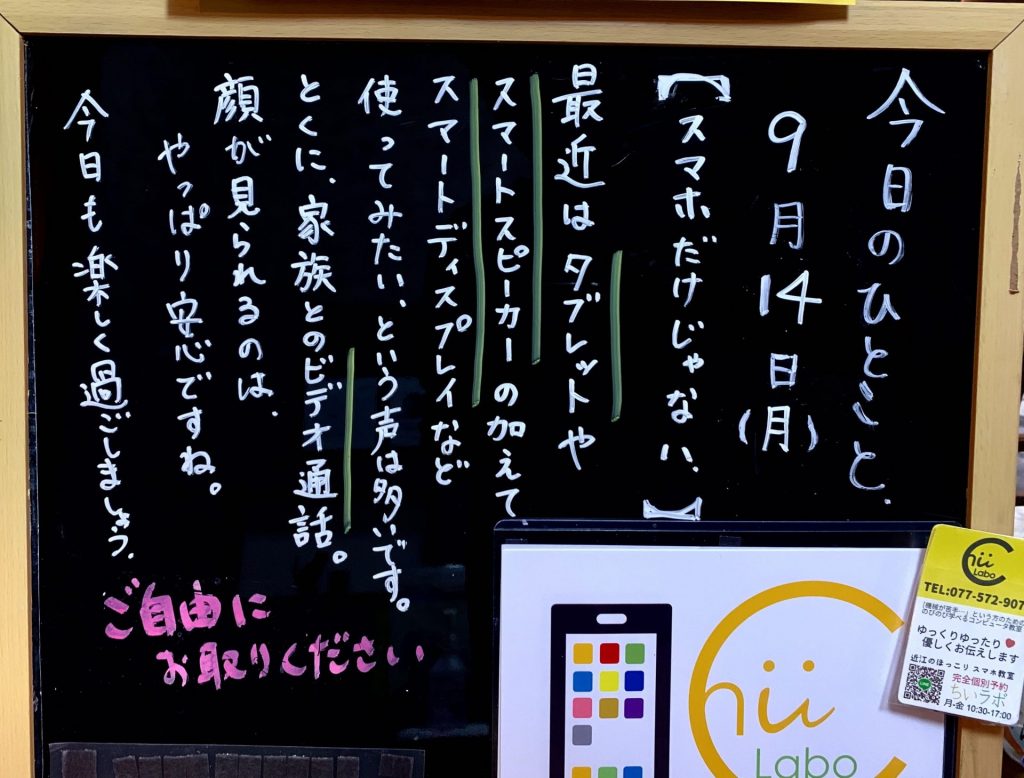 今日のひとこと.
9月14日(月)
【スマホだけじゃない.】
最近はタブレットや
スマートスピーカーの加えて
スマートディスプレイなど
使ってみたい、という声は多いです。
とくに、家族とのビデオ通話。
顔が見られるのは、
やっぱり安心ですね。
今日も楽しく過ごしましょう.
ご自由に
お取りください
Chii
Labo
Chii
Labo
TEL:077-572-907
「機械が苦手…」という方のための
のびのび学べるコンピュータ教室
ゆっくりゆったり
優しくお伝えします
近江のほっこりスマホ教室
完全個別予約
ちいラボ
月-金 10:30-17:00